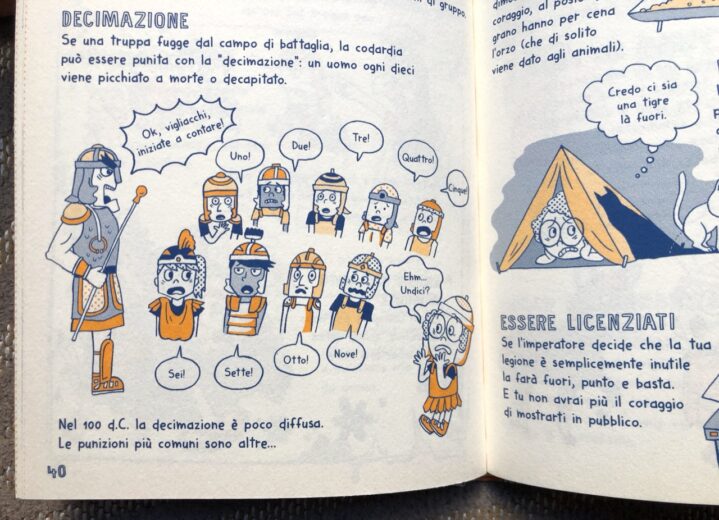 di gruppo.
DECIMAZIONE
Se una truppa fugge dal campo di battaglia, la codardia
può essere punita con la "decimazione": un uomo ogni dieci
viene picchiato a morte o decapitato.
Ok, vigliacchi,
iniziate a contare!
Uno!
Due!
Tre!
Quattro!
Cinque!
Sei!
Sette!
Otto!
Nove!
Ehm...
Undici?
Nel 100 d.C. la decimazione è poco diffusa.
Le punizioni più comuni sono altre...
40
coraggio, al posto
grano hanno per cena
l'orzo (che di solito
viene dato agli animali).
Credo ci sia
una tigre
là fuori.
ESSERE LICENZIATI
Se l'imperatore decide che la tua
legione è semplicemente inutile
la farà fuori, punto e basta.
E tu non avrai più il coraggio
di mostrarti in pubblico.